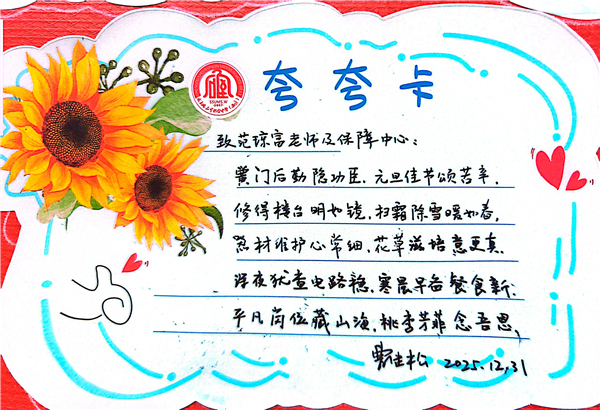 夸夸卡
致范琼富老师及保障中心：
黉门后勤隐功臣，元旦佳节颂苦辛，
修得楼台明如镜，扫霜除雪暖如春，
器材维护心常细，花草滋培意更真，
深夜犹查电路稳，寒晨早备餐食新，
平凡岗位藏山海，桃李芳菲念吾恩，
2025.12.31